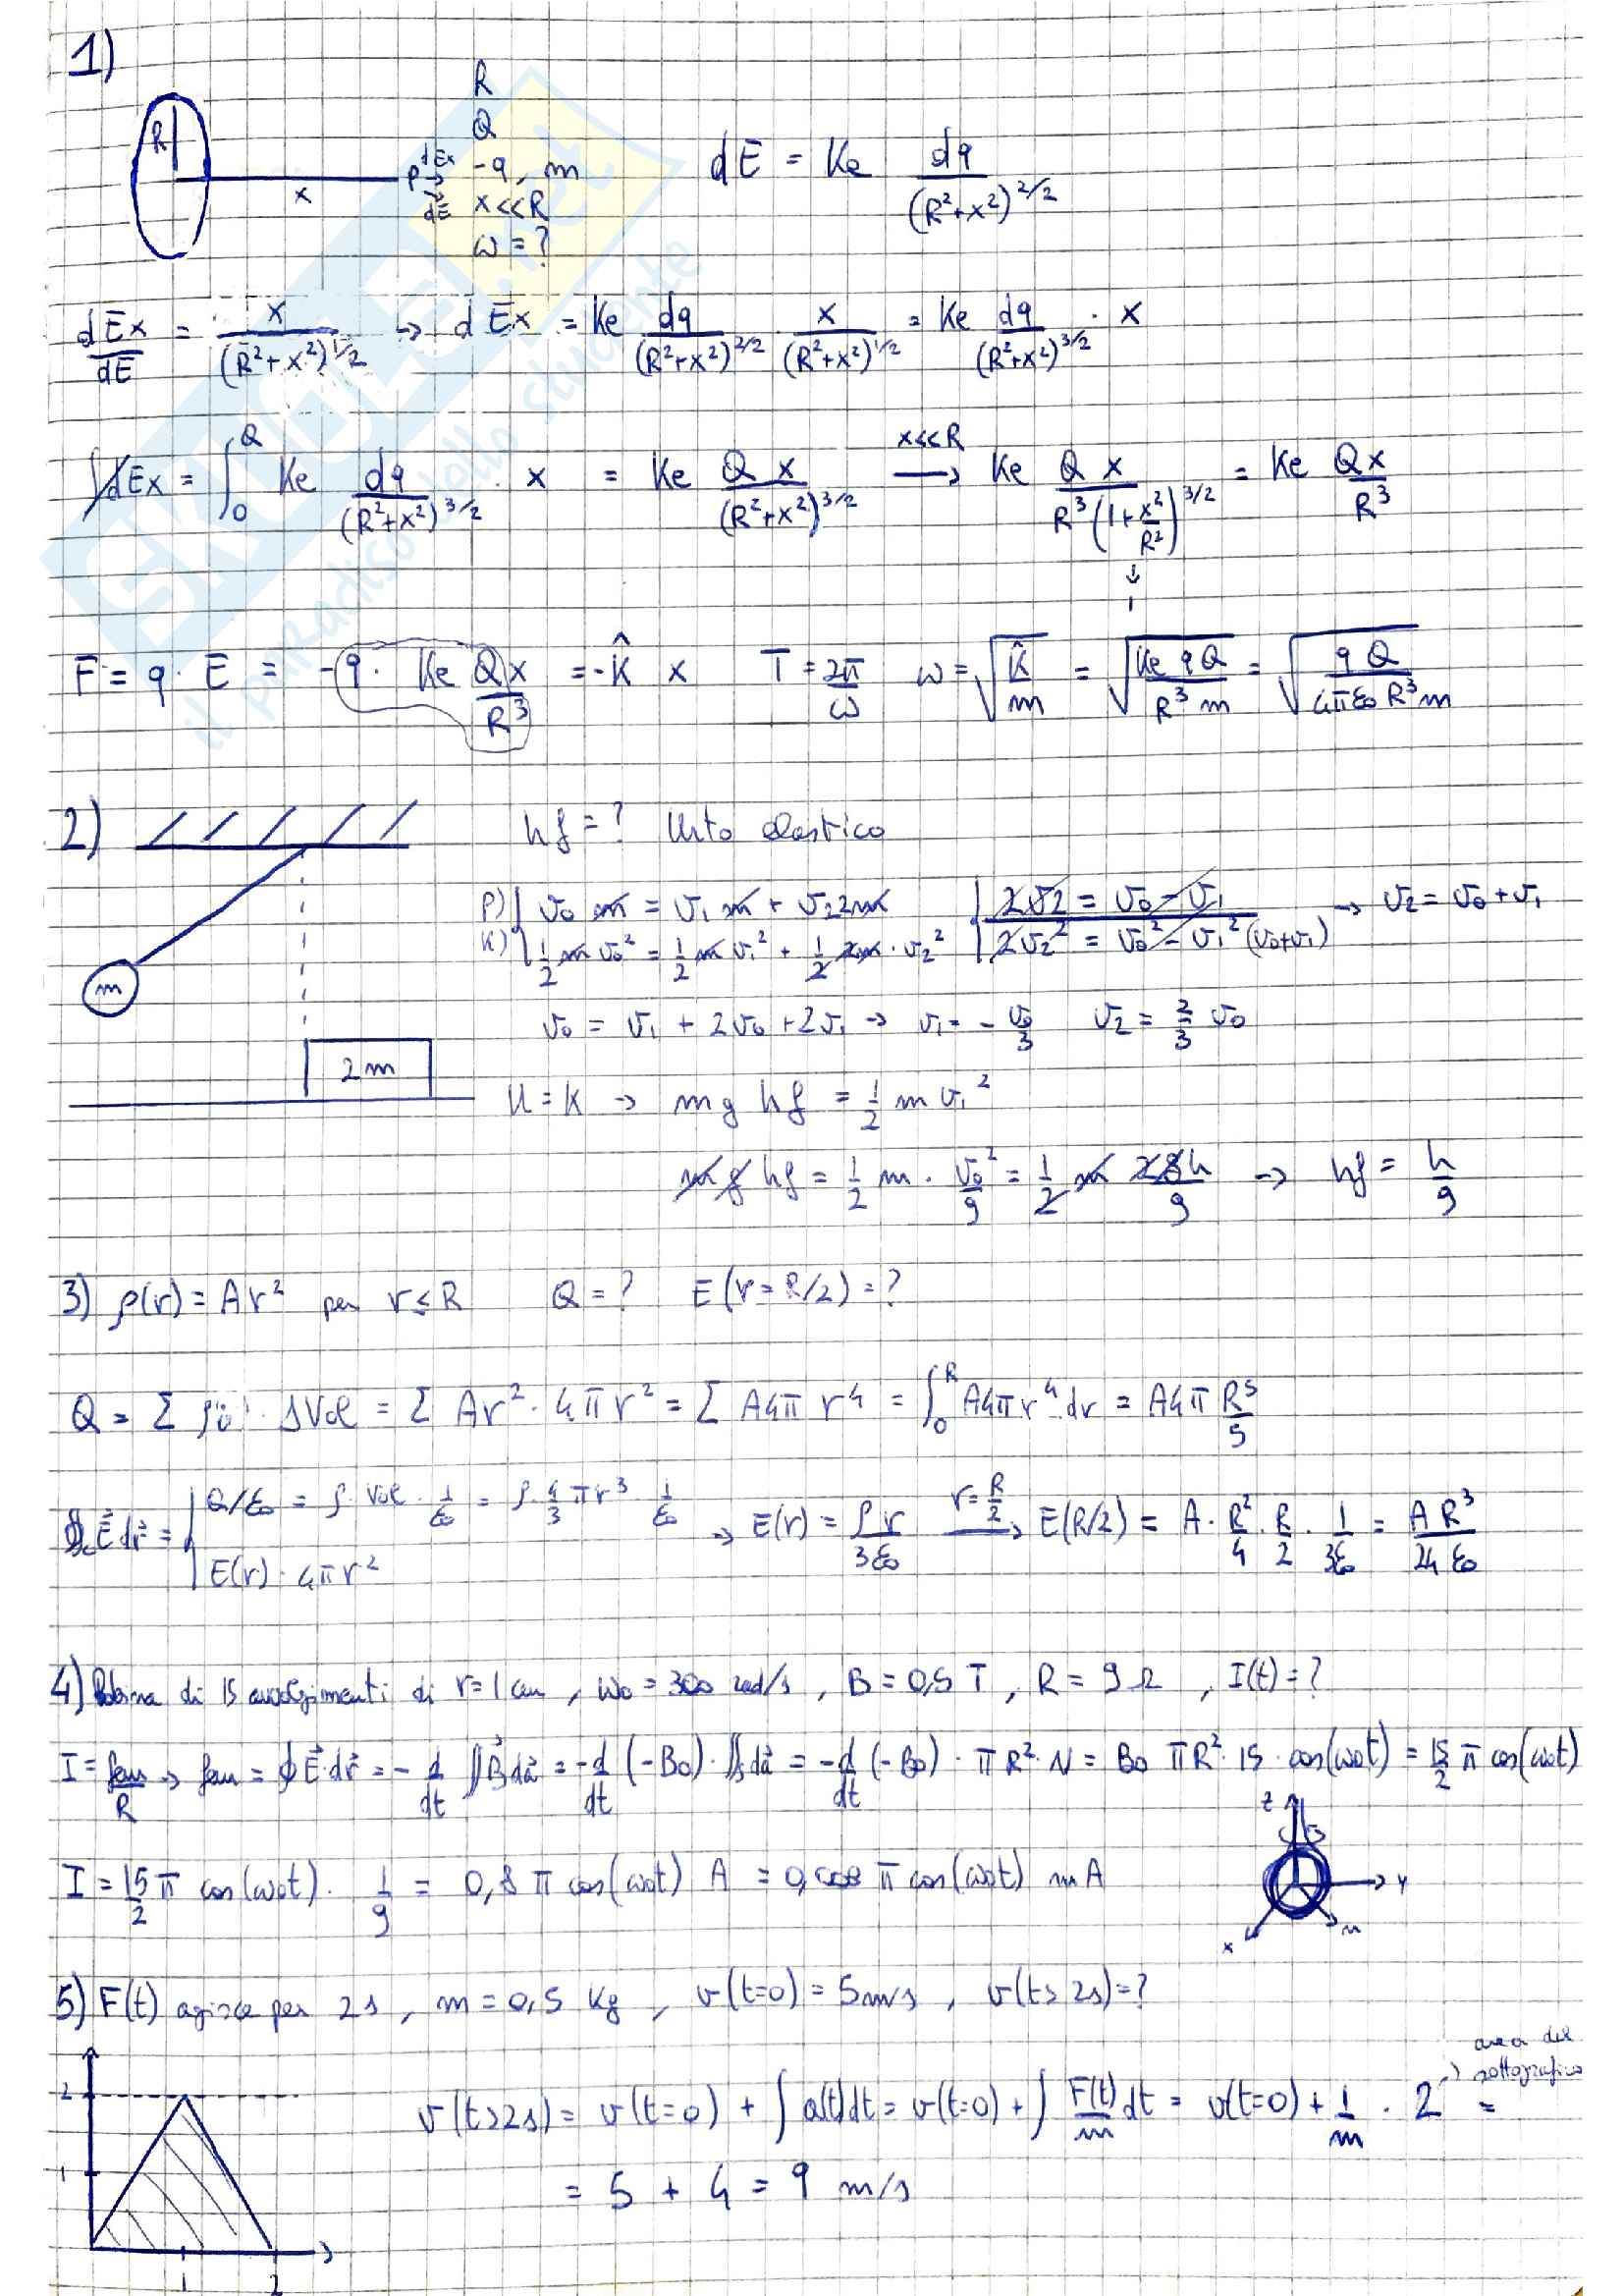 1)
R
R
Q
-q, m
x<<R
ω = ?
x
P dEx
dE
dE = Ke dq/(R²+x²)^2/2
dEx/dE = x/(R²+x²)^1/2 → dEx = Ke dq/(R²+x²)^2/2 · x/(R²+x²)^1/2 = Ke dq/(R²+x²)^3/2 · x
∫dEx = ∫₀^Q Ke dq/(R²+x²)^3/2 · x = Ke Qx/(R²+x²)^3/2 x<<R → Ke Qx/R³(1+x²/R²)^3/2 = Ke Qx/R³
F = q · E = -q · Ke Qx/R³ = -K̂ x T = 2π/ω ω = √(K̂/m) = √(Ke qQ/R³m) = √(qQ/4πε₀R³m)
2) hf = ? Urto elastico
m
2m
p) v₀ m = v₁ m + v₂ 2m 2v₂ = v₀ - v₁ → v₂ = v₀ + v₁
K) 1/2 m v₀² = 1/2 m v₁² + 1/2 2m · v₂² 2v₂² = v₀² - v₁² (v₀+v₁)
v₀ = v₁ + 2v₀ + 2v₁ → v₁ = - v₀/3 v₂ = 2/3 v₀
U = K → m g hf = 1/2 m v₁²
m g hf = 1/2 m · v₀²/9 = 1/2 m 2gh/9 → hf = h/9
3) ρ(r) = Ar² per r ≤ R Q = ? E(r = R/2) = ?
Q = Σ ρ · ΔVol = Σ Ar² · 4πr² = Σ A4π r⁴ = ∫₀^R A4πr⁴dr = A4π R⁵/5
∮ E dr = Q/ε₀ = ρ · Vol · 1/ε₀ = ρ · 4/3 πr³ · 1/ε₀ → E(r) = ρr/3ε₀ r = R/2 → E(R/2) = A · R²/4 · R/2 · 1/3ε₀ = AR³/24ε₀
E(r) · 4πr²
4) Bobina di 15 avvolgimenti di r = 1 cm, ω₀ = 300 rad/s, B = 0,5 T, R = 9 Ω, I(t) = ?
I = fem/R → fem = ∮ E·dr = - d/dt ∬ B da = - d/dt (-B₀) · ∬ da = - d/dt (-B₀) · πR² · N = B₀ πR² · 15 · cos(ω₀t) = 15/2 π cos(ω₀t)
I = 15/2 π cos(ω₀t) · 1/9 = 0,8 π cos(ω₀t) A = 0,008 π cos(ω₀t) mA
z
y
x
n
5) F(t) agisce per 2s, m = 0,5 Kg, v(t=0) = 5m/s, v(t>2s) = ?
2
1
1
2
v(t>2s) = v(t=0) + ∫ a(t)dt = v(t=0) + ∫ F(t)/m dt = v(t=0) + 1/m · 2 =
→ area del
sottografico
= 5 + 4 = 9 m/s
SKUOLA.net
il paradiso dello studente